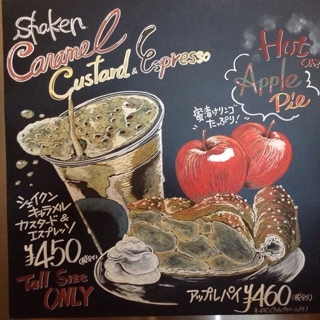 Shaken
Caramel
Custard & Espresso
Hot
Apple
Pie
蜜漬けリンゴ
たっぷり!
シェイクン
キャラメル
カスタード&
エスプレッソ
¥450(税別)
Tall Size
ONLY
アップルパイ ¥460(税別)